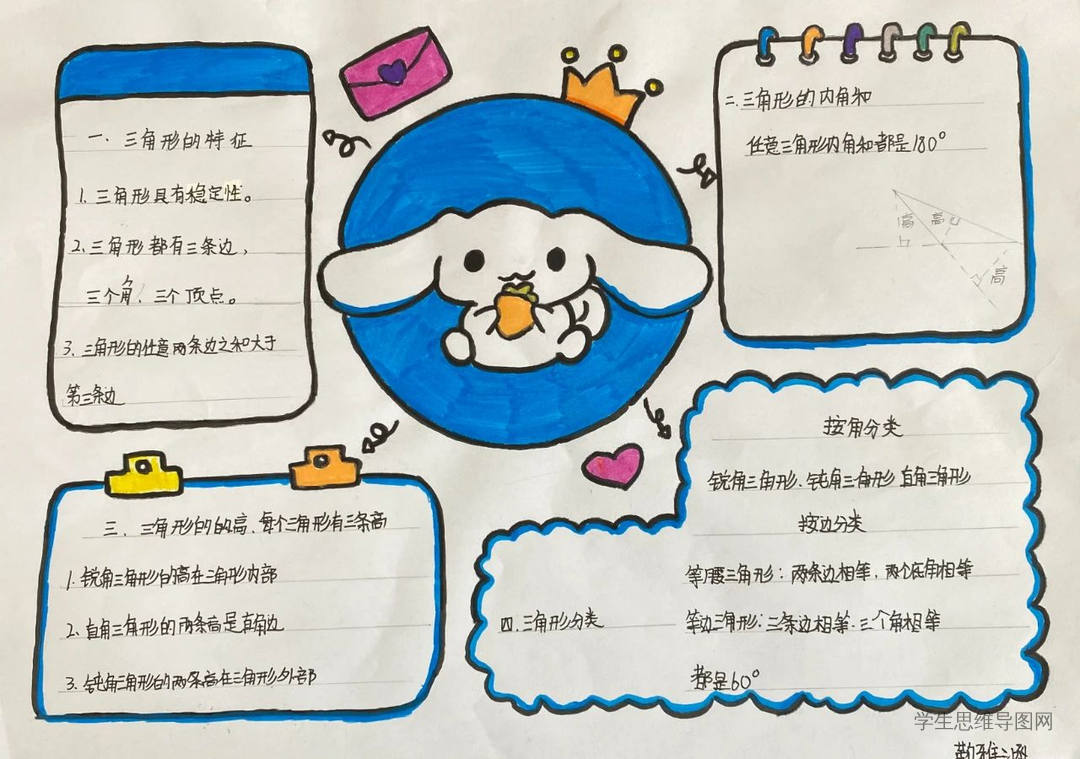 一、三角形的特征
1、三角形具有稳定性。
2、三角形都有三条边，
三个角、三个顶点。
3、三角形的任意两条边之和大于
第三条边
二、三角形的内角和
任意三角形内角和都是180°
高 高
高
三、三角形的的高、每个三角形有三条高
1、锐角三角形的高在三角形内部
2、直角三角形的两条高是直角边
3、钝角三角形的两条高在三角形外部
四、三角形分类
按角分类
锐角三角形、钝角三角形 直角三角形
按边分类
等腰三角形：两条边相等，两个底角相等
等边三角形：三条边相等·三个角相等
都是60°
学生思维导图网